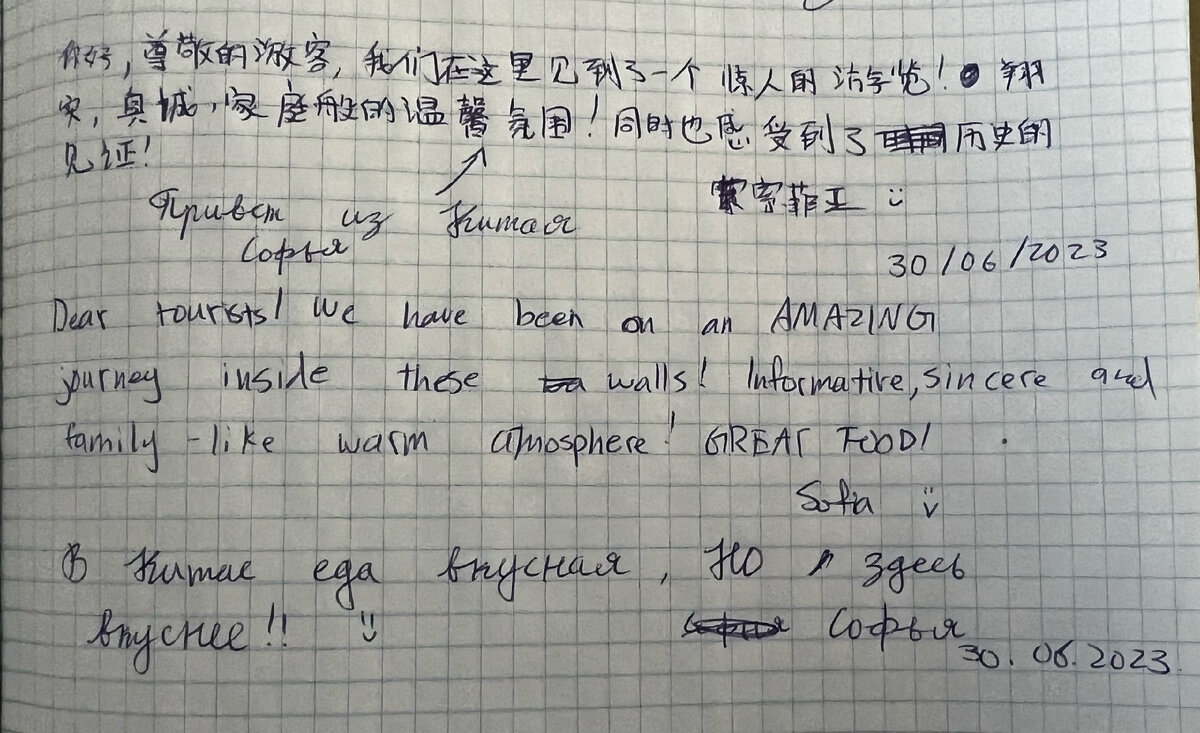 你好，尊敬的游客，我们在这里见到了一个惊人的 览！翔
实，真诚，家庭般的温馨氛围！同时也感受到了历史的
见证！
索菲亚
Привет из Китая
Софья
30/06/2023
Dear tourists! We have been on an AMAZING
journey inside these walls! Informative, sincere and
family-like warm atmosphere! GREAT FOOD!
Sofia
В Китае еда вкусная, НО здесь
вкуснее!!
Софья
30.06.2023